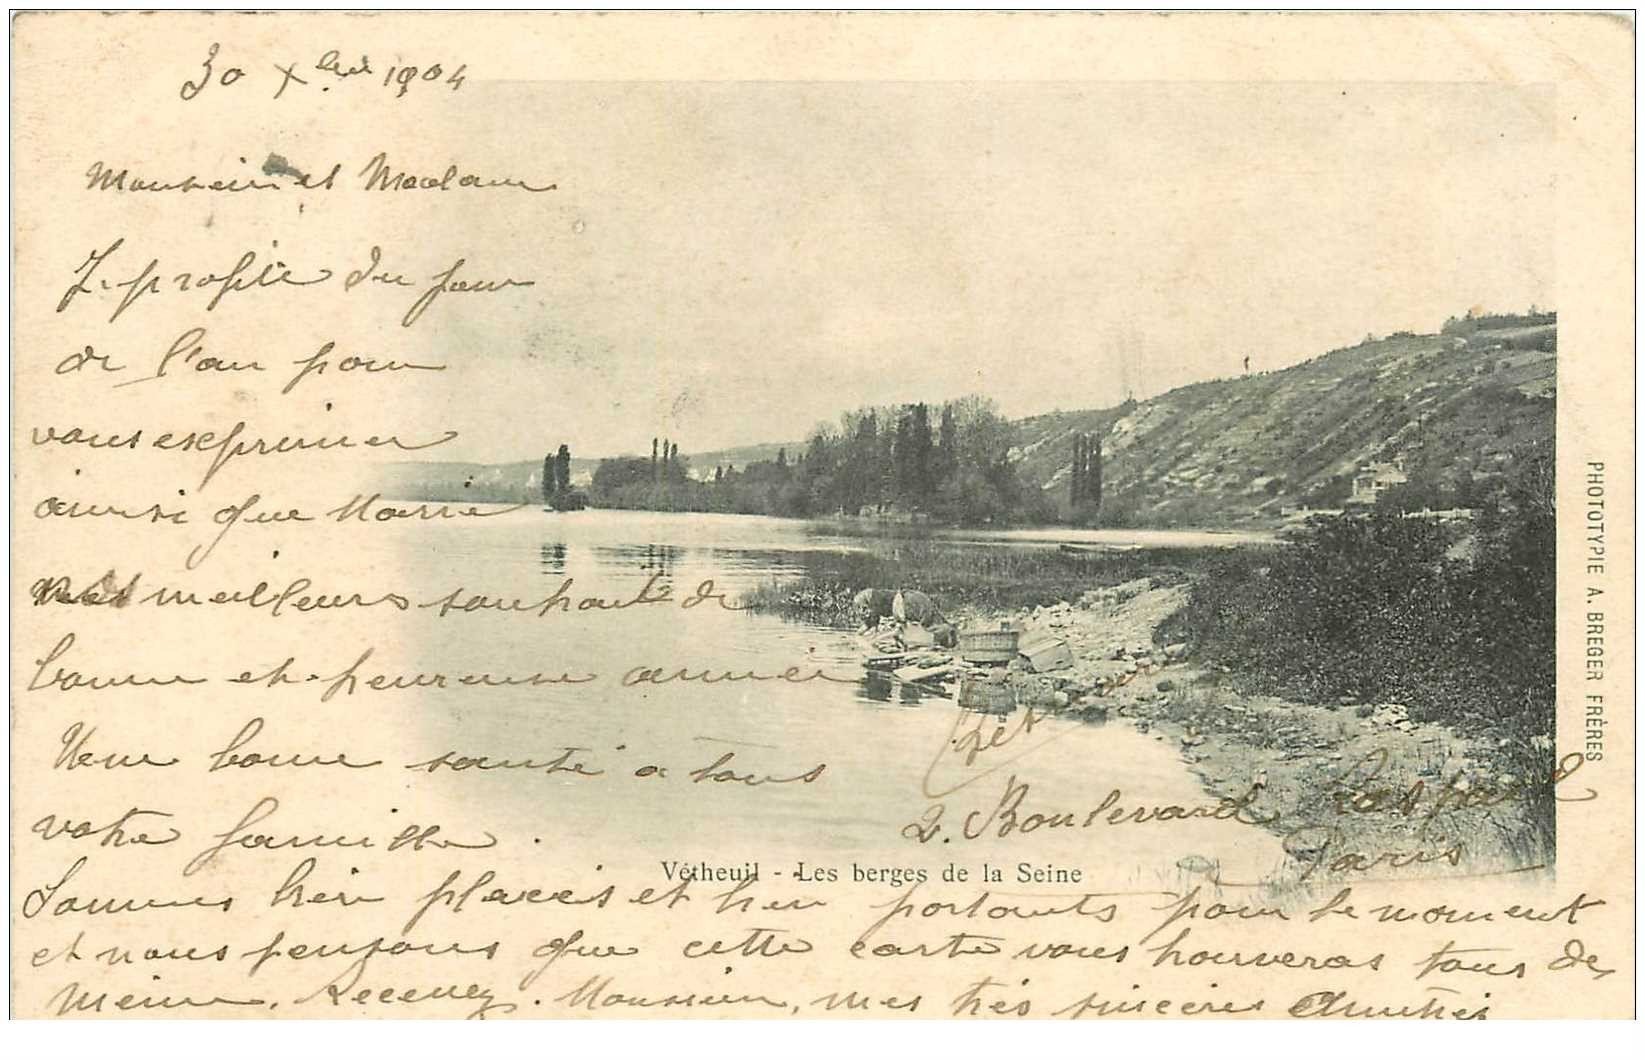 30 Xbre 1904
Monsieur et Madame
Je profite du jour
de l'an pour
vous exprimer
ainsi que Marie
nos meilleurs souhaits de
bonne et heureuse année
Une bonne santé a tous
votre famille.
2. Boulevard Raspail
Paris
Vétheuil - Les berges de la Seine
Sommes bien placés et bien portants pour le moment
et nous pensons que cette carte vous trouveras tous de
même. Recevez. Monsieur, mes très sincères Amitiés
PHOTOTYPIE A. BREGER FRÈRES